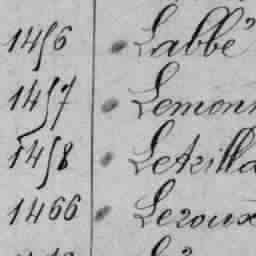 1456 Labbé
1457 Lemon
1458 Letrilla
1466 Leroux